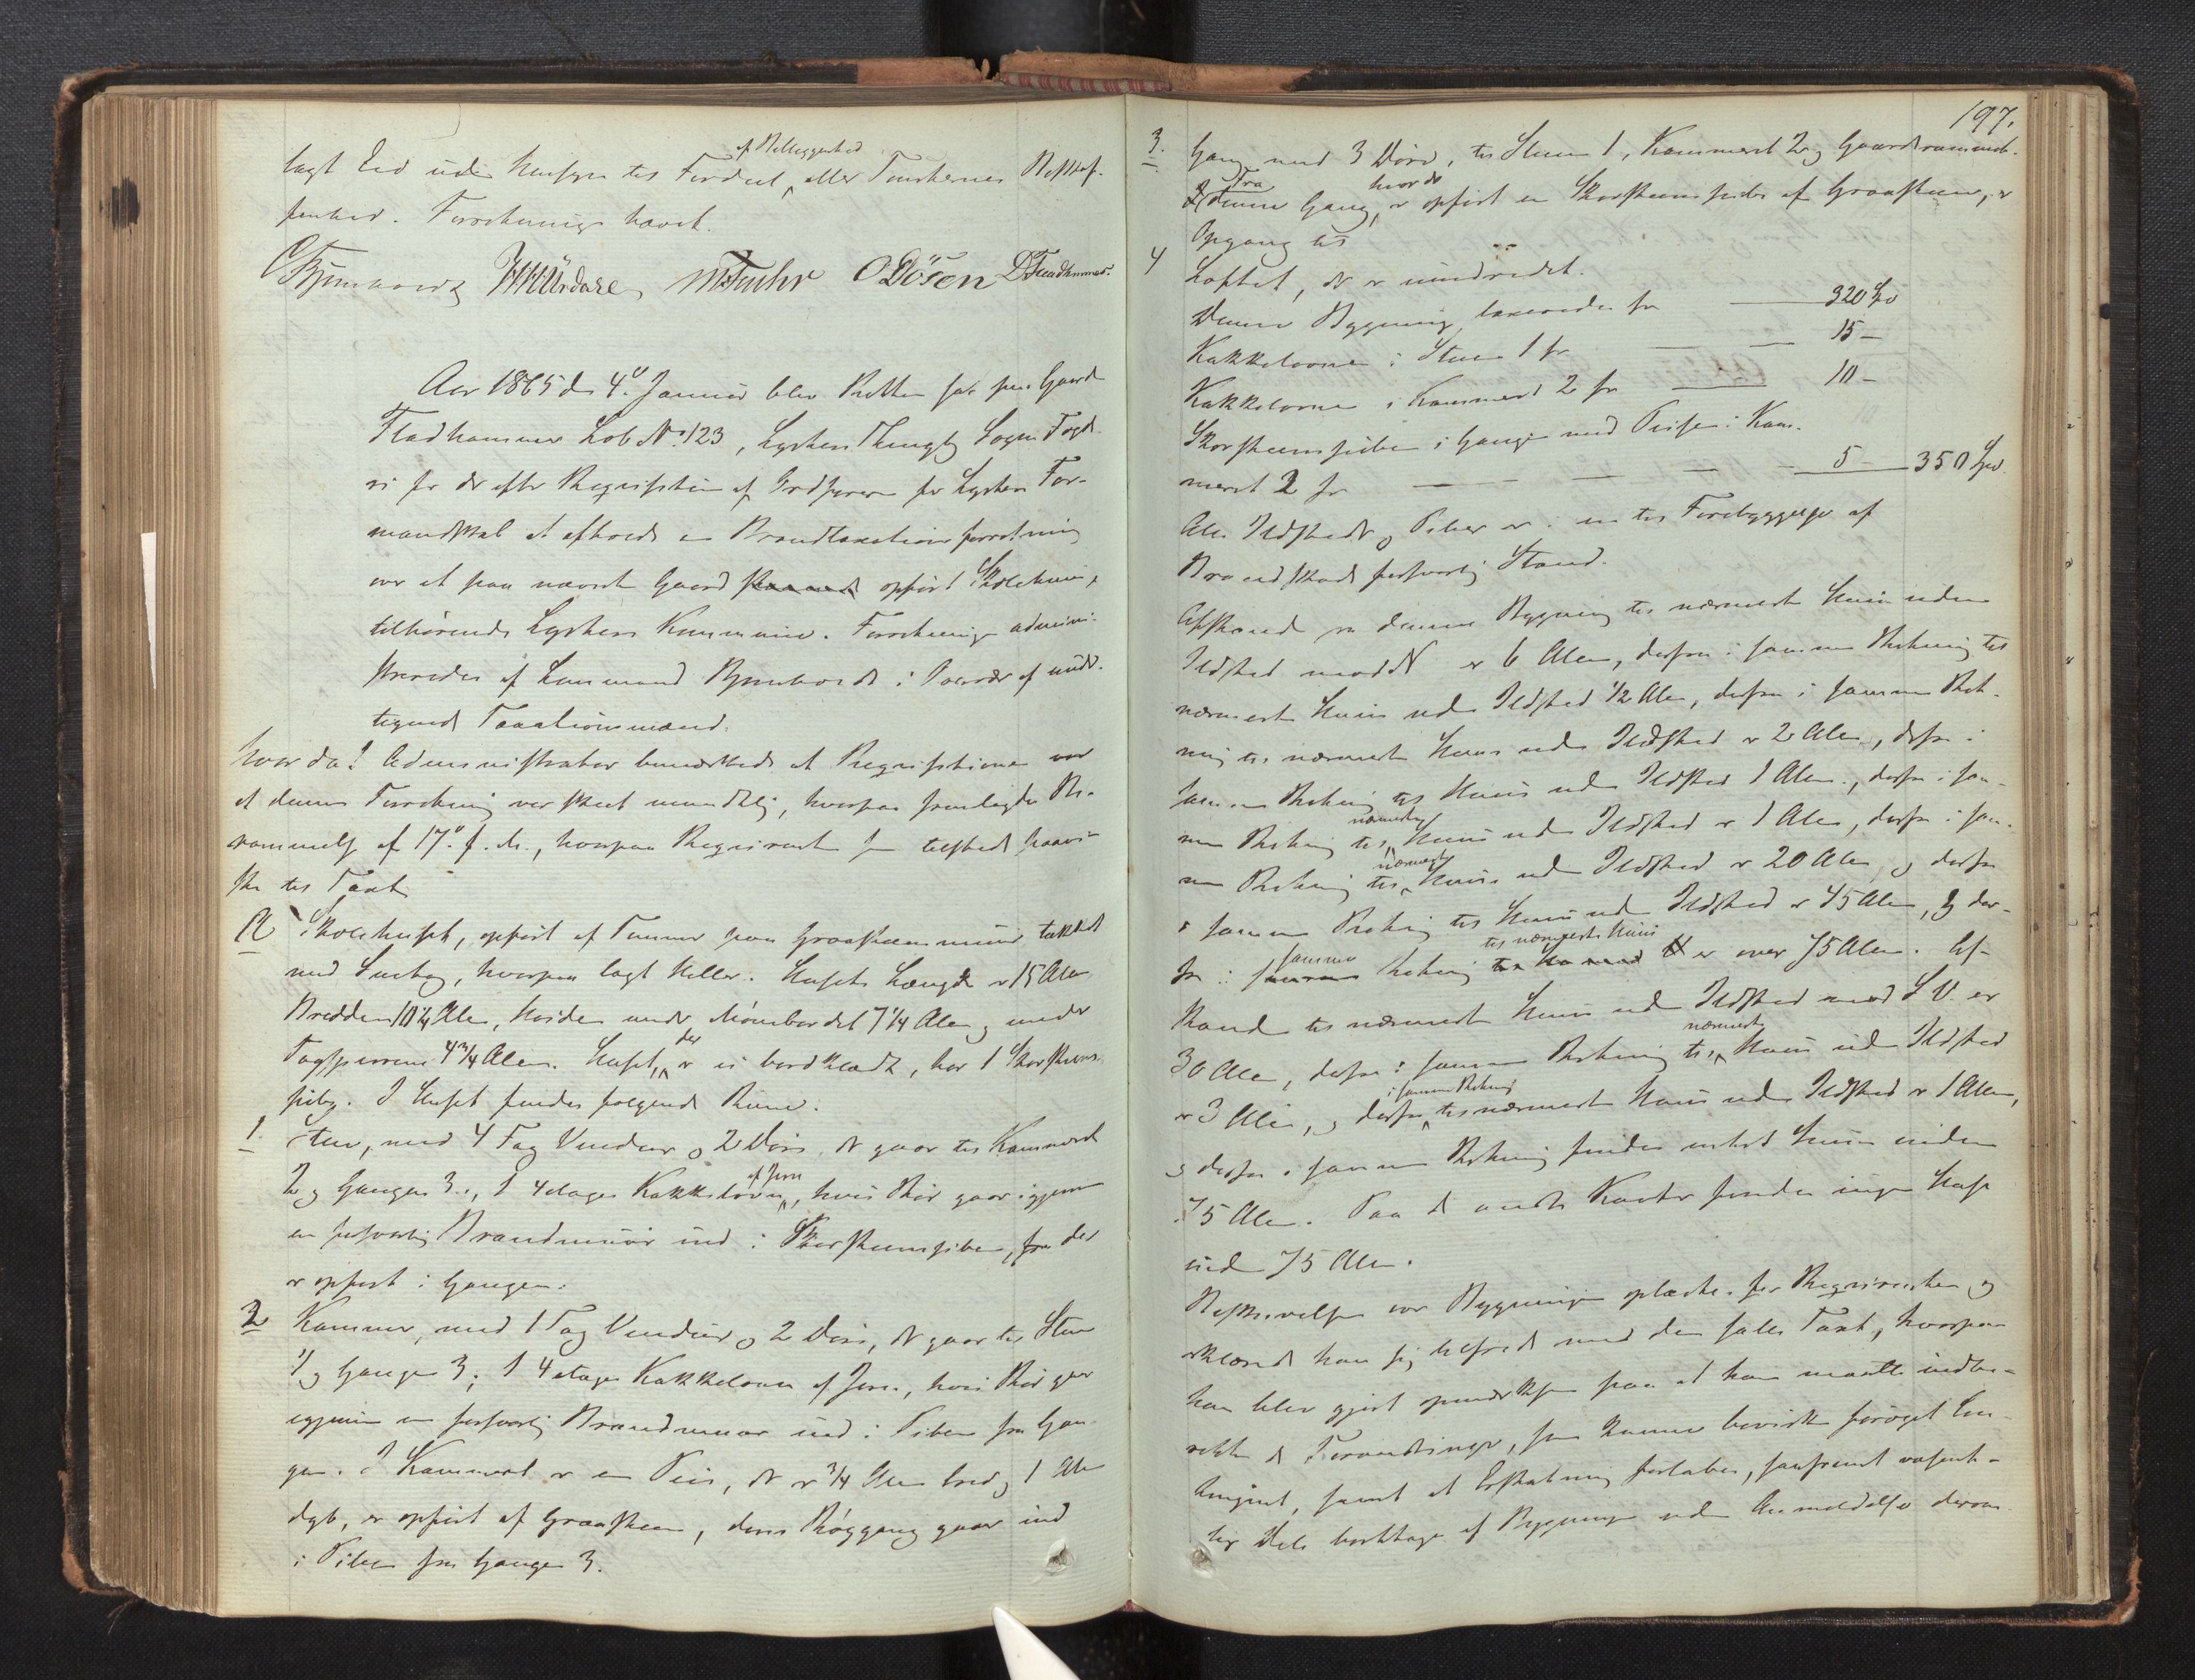 lagt Eed uden Hensyn til Fordeel ^af Beliggenhed eller Tomternes Beskaf-
fenhed. Forretningen hævet.
MFuhr ODösen
Aar 1865 den 4de Januar blev Retten sat paa Gaard
Fladhammer Lob No 123, Lyster Thinglag Sogns Fogd-
ri for der efter Reqvisition af Ordføreren for Lyster For-
mandskab at afholde en Brandtaxationsforretning
over et paa nævnte Gaard opført Skolehuus,
tilhørende Lysters Kommune. Forretningen admini-
streredes af Lensmand i Overvær af under-
tegnede Taxationsmænd.
Hvor da! Administrator bemærkede at Reqvisitionen om
at denne Forretning var skeet mundtlig, hvorpaa fremlagdes Be-
rammelse af 17de f. M., hvorpaa Reqvirenten som tilstede
til Taxt
A Skolehuset, opført af Tømmer paa Graasteensmuur takket
med Sutag, hvorpaa lagt Heller. Husets Længde er 15 Alen
Bredden 10 1/4 Alen, Høiden under Mønebordet 7 1/4 Alen og under
Tagsperrene 4 3/4 Alen. Huset, ^der er ei bordklædt, har 1 Skorsteens-
pibe. I Huset findes følgende Rum.
1. Stue, med 4 Fag Vinduer og 2 Døre, der gaar til Kammeret
2 og Gangen 3., 1 4etages Kakkelovn ^af Jern, hvis Rør gaar igjennem
en forsvarlig Brandmuur ind i Skorsteenspiben, der
er opført i Gangen.
2 Kammer, med 1 Fag Vinduer og 2 Døre, der gaar til Stue
1 og Gangen 3; 1 4etages Kakkelovn af Jern, hvis Rør gaar
igjennem en forsvarlig Brandmuur ind i Piben fra Gan-
gen. I Kammeret er en Peis, der er 3/4 Alen bred og 1 Alen
dyb, er opført af Graasteen, dens Røggang gaar ind
i Piben fra Gangen 3.
197.
3. Gang med 3 Døre, til Stuen 1, Kammeret 2 og Gaardsrummet.
Fra denne Gang, ^hvor der er opført en Skorsteenspibe af Graasteen, er
Opgang til
4 Loftet, der er uindredet.
Denne Bygning taxeredes for 320 Spd
Kakkelovnen i Stuen 1 for 15 –
Kakkelovnen i Kammeret 2 for 10 –
Skorsteenspiben i Gangen med Peisen i Kam-
meret 2 for 5 – 350 Spd.
Alle Ildsteder og Piber er i en til Forebyggelse af
Brandskade forsvarlig Stand.
Afstand fra denne Bygning til nærmeste Huus uden
Ildsted mod N er 6 Alen, derfra i samme Retning til
nærmeste Huus uden Ildsted 1/2 Alen, derfra i samme Ret-
ning til nærmeste Huus uden Ildsted er 2 Alen, derfra i
samme Retning til Huus uden Ildsted 1 Alen., derfra i sam-
me Retning til ^nærmeste Huus uden Ildsted er 1 Alen, derfra i sam-
me Retning til ^nærmeste Huus uden Ildsted er 20 Alen, og derfra
i samme Retning til Huus uden Ildsted er 45 Alen, og der-
fra i samme Retning til nærmeste Huus er over 75 Alen. Af-
stand til nærmeste Huus uden Ildsted mod S V. er
30 Alen, derfra i samme Retning til ^nærmeste Huus uden Ildsted
er 3 Alen, og derfra ^i samme Retning til nærmeste Huus uden Ildsted er 1 Alen,
og derfra i samme Retning findes intet Huus inden
75 Alen. Paa de andre Kanter findes ingen Huse
inden 75 Alen.
Beskrivelsen over Bygningen oplæstes for Reqvirenten og
erklærede han sig tilfreds med den satte Taxt, hvorpaa
han blev gjort opmærksom paa at han maatte indbe-
rette de Forandringer, som kunne bevirke forøget
samt at Erstatning fortabes, saafremt væsent-
lige Dele borttages af Bygningen uden Anmeldelse derom